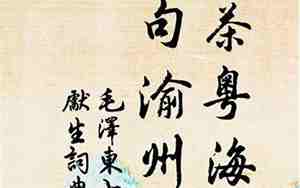 茶粤海
句渝州
毛澤東
獻生詞典